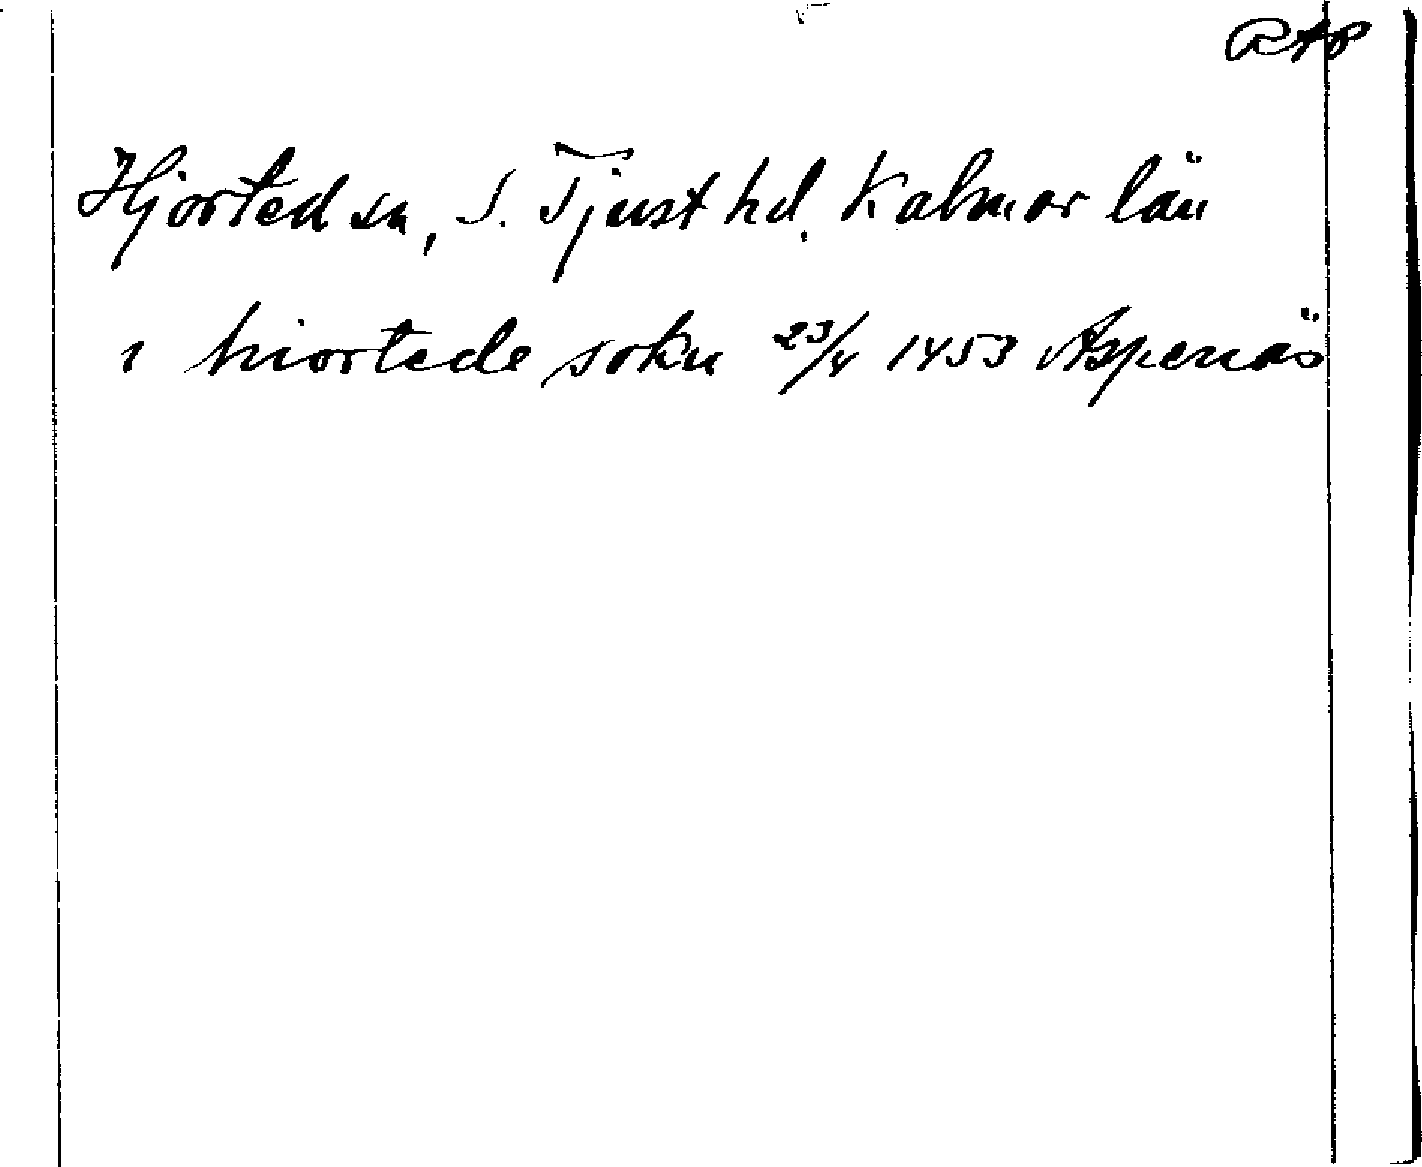 RAP
Hjorted sn, S. Tjust hd. Kalmar län
i hiortede sokn 23/4 1453 Aspenäs